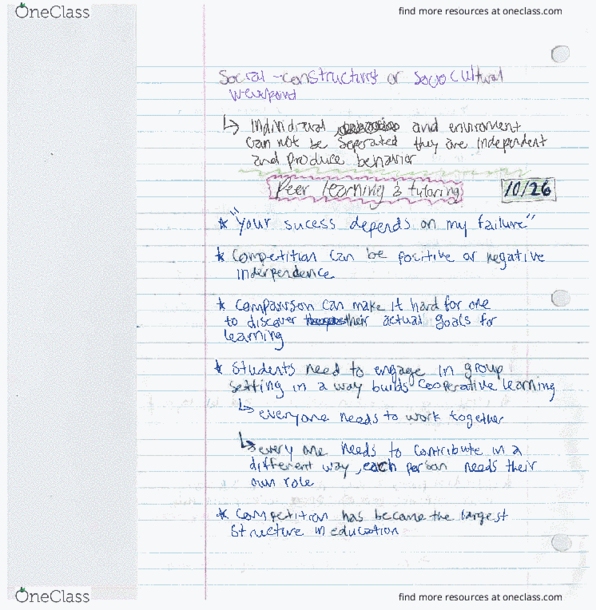 OneClass
find more resources at oneclass.com
Social-constructivist or Sociocultural
viewpoint
↳ Individual and environment
can not be seperated they are independent
and produce behavior
Peer learning & tutoring
10/26
* "Your sucess depends on my failure"
* Competition can be positive or negative
inderpendence
* Comparison can make it hard for one
to discover their actual goals for
learning
* Students need to engage in group
setting in a way builds cooperative learning
↳ everyone needs to work together
↳ every one needs to contribute in a
different way, each person needs their
own role
* Competition has became the largest
structure in education
OneClass
find more resources at oneclass.com